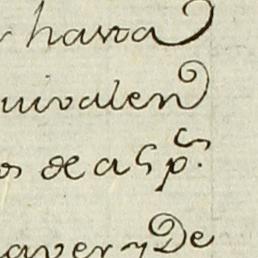 hasta
quivalen
os de a 5 p.s
aver y De